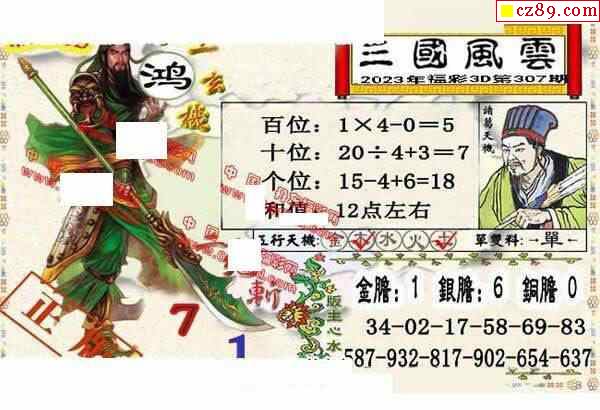 cz89.com
三國風雲
2023年福彩3D第307期
鸿
玄
機
百位：1×4-0=5
十位：20÷4+3=7
个位：15-4+6=18
和值：12点左右
諸葛天機
五行天機：金木水火土
單雙料：→單←
金膽：1 銀膽：6 銅膽 0
34-02-17-58-69-83
587-932-817-902-654-637
版主心水
斬
正
7
1